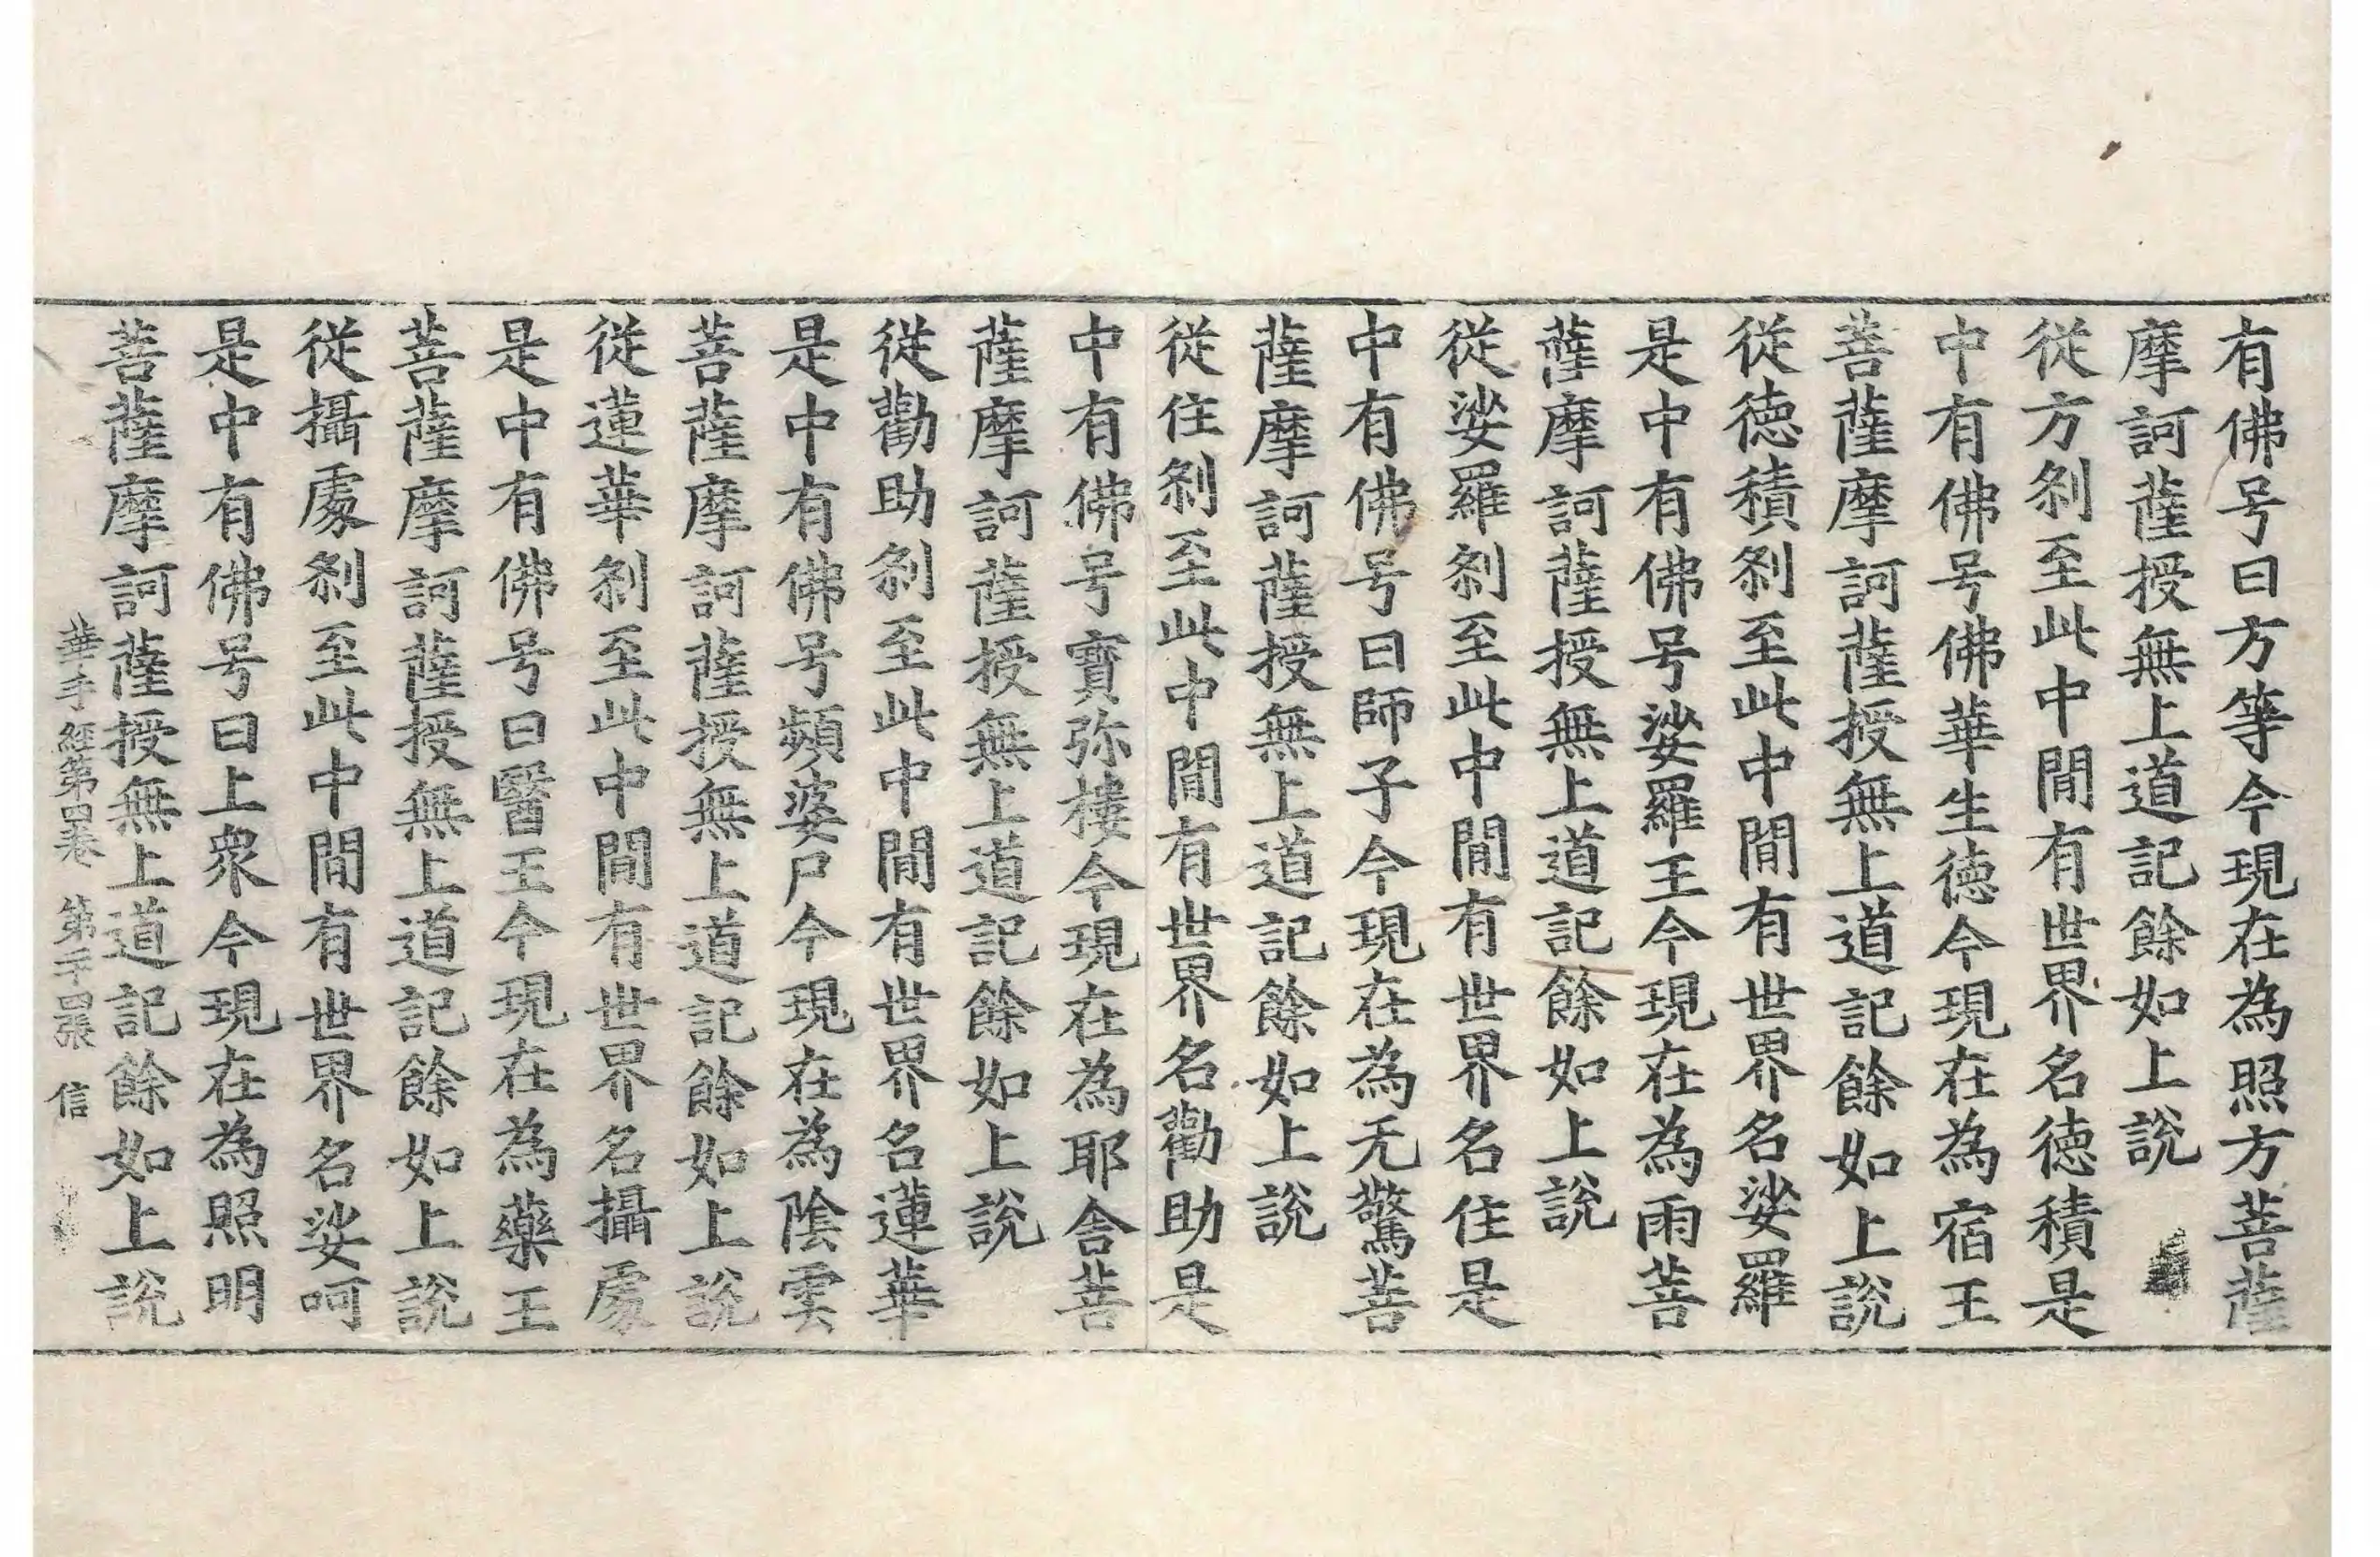 有佛号曰方等今現在為照方菩薩
摩訶薩授無上道記餘如上說
従方剎至此中間有世界名德積是
中有佛号佛華生德今現在為宿王
菩薩摩訶薩授無上道記餘如上說
従德積剎至此中間有世界名娑羅
是中有佛号娑羅王今現在為雨菩
薩摩訶薩授無上道記餘如上說
従娑羅剎至此中間有世界名住是
中有佛号曰師子今現在為无驚菩
薩摩訶薩授無上道記餘如上說
従住剎至此中間有世界名勸助是
中有佛号寶弥樓今現在為耶舍菩
薩摩訶薩授無上道記餘如上說
従勸助剎至此中間有世界名蓮華
是中有佛号頻婆尸今現在為陰雲
菩薩摩訶薩授無上道記餘如上說
従蓮華剎至此中間有世界名攝處
是中有佛号曰醫王今現在為藥王
菩薩摩訶薩授無上道記餘如上說
従攝處剎至此中間有世界名娑呵
是中有佛号曰上衆今現在為照明
菩薩摩訶薩授無上道記餘如上說
華手經第四卷 第千四張 信